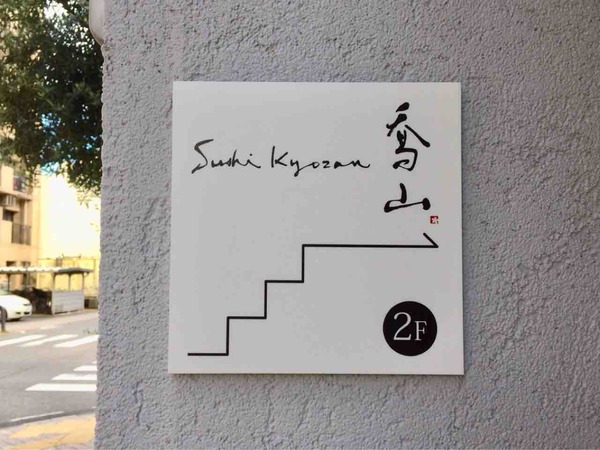 Sushi Kyozan
喬山
2F